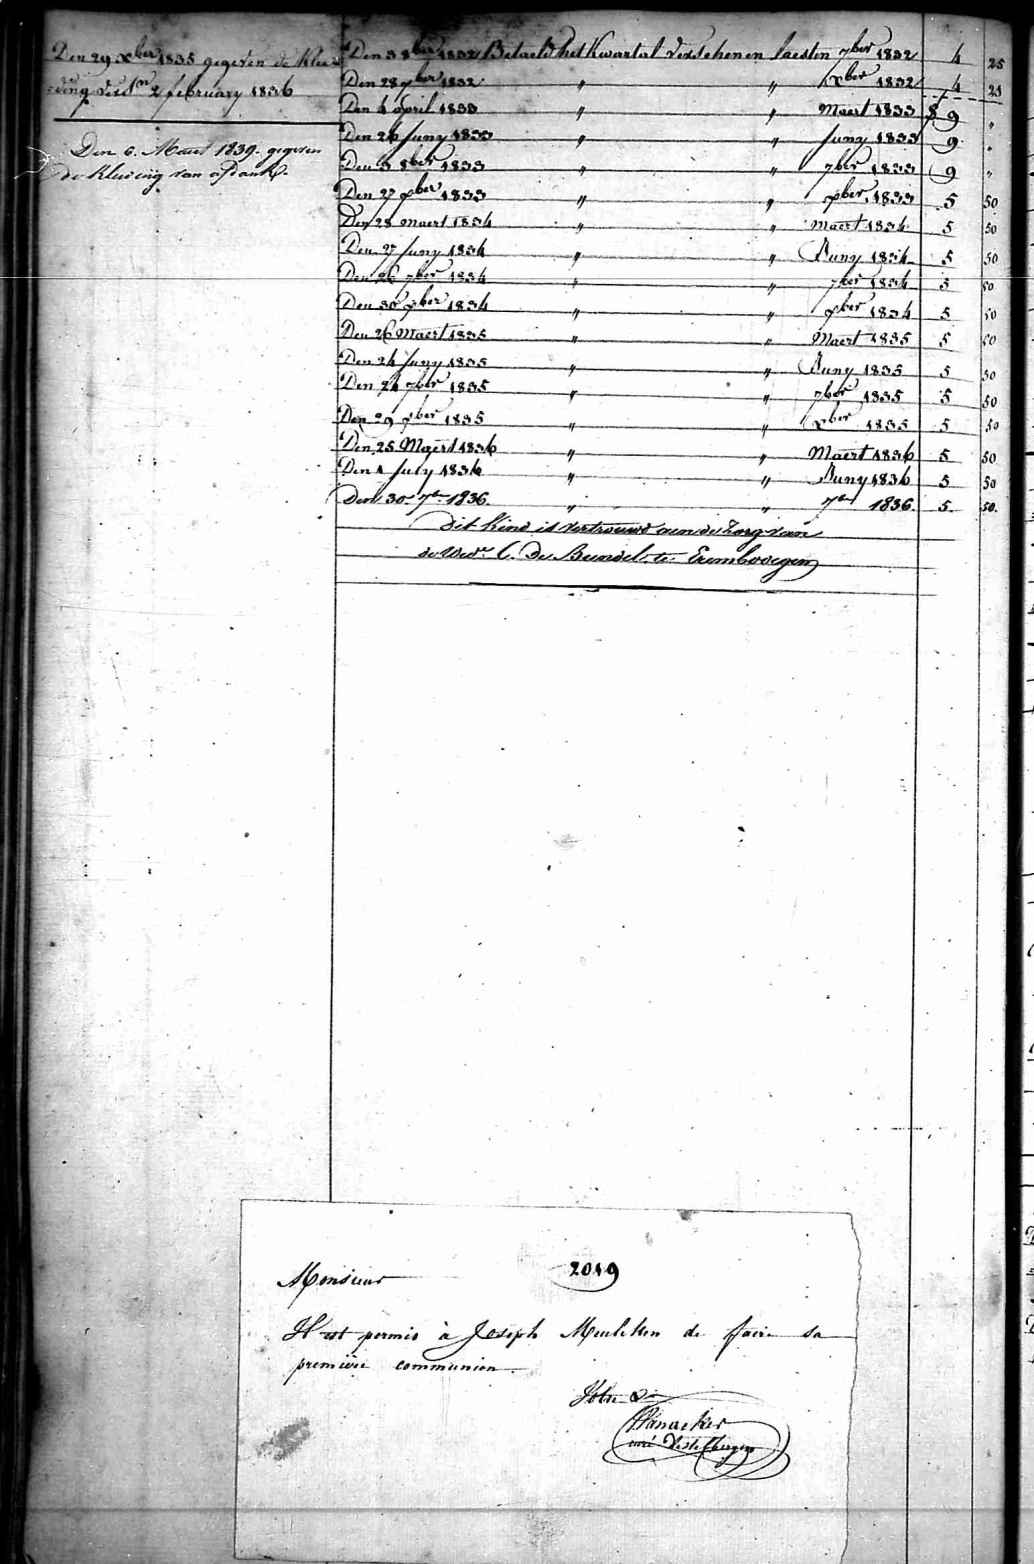 Den 29 xber 1835 gegeven de klee=
=ding vers.en 2 february 1836
Den 6. Maert 1839. gegeven
de kleeding van afdank.
Den 3 8ber 1832 Betaeld het kwartal verschenen laestn 7ber 1832 4 25
Den 28 xber 1832 " " xber 1832 4 25
Den 4 april 1833 " " Maert 1833 9 "
Den 26 Juny 1833 " " Juny 1833 9 "
Den 3 8ber 1833 " " 7ber 1833 9 "
Den 27 xber 1833 " " xber 1833 5 50
Den 28 maert 1834 " " Maert 1834 5 50
Den 27 Juny 1834 " " Juny 1834 5 50
Den 26 7ber 1834 " " 7ber 1834 5 50
Den 30 xber 1834 " " xber 1834 5 50
Den 26 Maert 1835 " " Maert 1835 5 50
Den 24 Juny 1835 " " Juny 1835 5 50
Den 24 7ber 1835 " " 7ber 1835 5 50
Den 29 xber 1835 " " xber 1835 5 50
Den 25 Maert 1836 " " Maert 1836 5 50
Den 1 July 1836 " " Juny 1836 5 50
Den 30 7er 1836. " " 7er 1836. 5. 50.
Dit kind is vertrouwd aen de zorg van
de Wedwe C. De Bundel te Erembodegem
2019
Monsieur
Il est permis à Joseph Meuleken de faire sa
première communion
Votre
curé Destelbergen